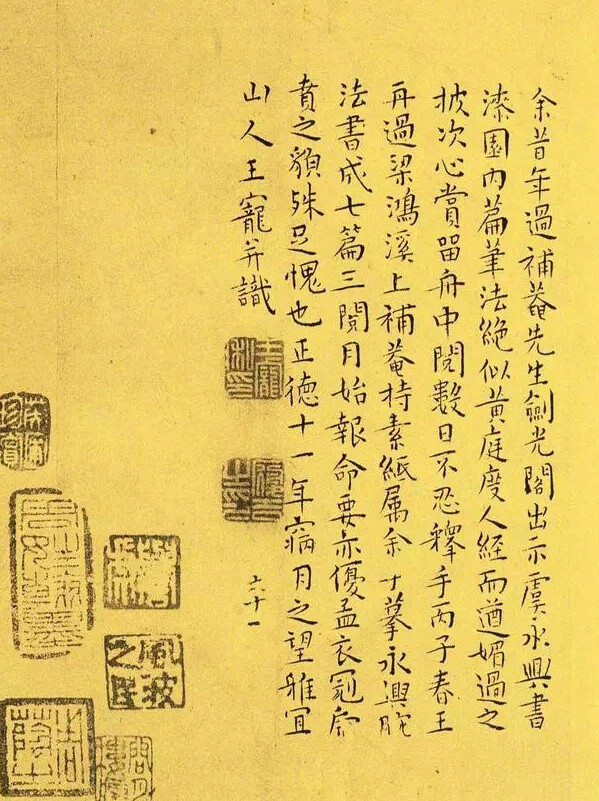 余昔年過補菴先生劍光閣出示虞永興書
漆園內篇筆法絶似黃庭度人經而遒媚過之
披次心賞留舟中閱數日不忍釋手丙子春王
再過梁鴻溪上補菴持素紙属余摹永興腕
法書成七篇三閱月始報命要亦優孟衣冠虎
賁之貌殊足愧也正德十一年窉月之望雅宜
山人王寵并識
王寵私印
六十一
風波之民